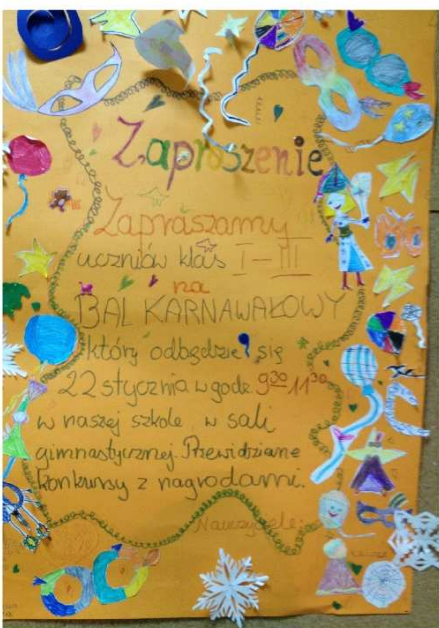 Zaproszenie
Zapraszamy
uczniów klas I-III
na
BAL KARNAWAŁOWY
który odbędzie się
22 stycznia w godz. 9³⁰ 11³⁰
w naszej szkole w sali
gimnastycznej. Przewidziane
konkursy z nagrodami.
Nauczyciele: